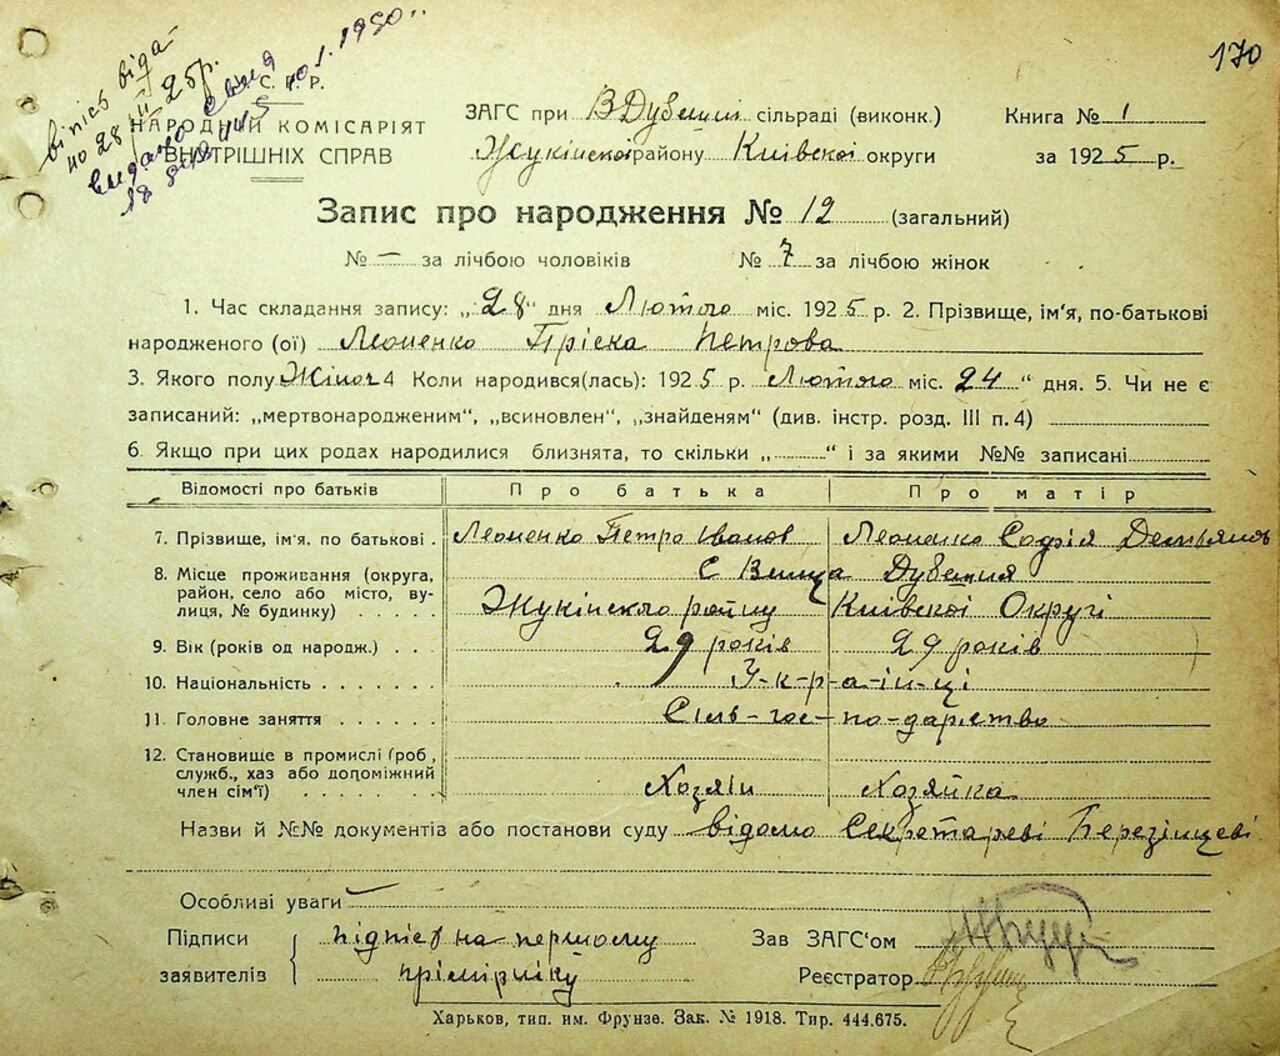 170
випіс віда-
но 28/II 25р.
видано свид
10.I.1950..
У. С. Р. Р.
НАРОДНИЙ КОМІСАРІЯТ
ВНУТРІШНІХ СПРАВ
ЗАГС при В Дубешні сільраді (виконк.)
Жукінскоі району Київскоі округи
Книга № 1
за 1925 р.
Запис про народження № 12 (загальний)
№ — за лічбою чоловіків № 7 за лічбою жінок
1. Час складання запису: „28“ дня Лютого міс. 1925 р. 2. Прізвище, ім‘я, по-батькові
народженого (ої) Леоненко Пріська Петрова
3. Якого полу Жіноч 4 Коли народився(лась): 1925 р. Лютого міс. 24 “ дня. 5. Чи не є
записаний: „мертвонародженим“, „всиновлен“, „знайденям“ (див. інстр. розд. III п. 4)
6. Якщо при цих родах народилися близнята, то скільки „ “ і за якими №№ записані
Відомості про батьків Про батька Про матір
7. Прізвище, ім‘я, по батькові . Леоненко Петро Іванов Леоненко Софія Демьянов
8. Місце проживання (округа, С Вища Дубешня
район, село або місто, ву-
лиця, № будинку) . . . . Жукінского району Київскоі Округі
9. Вік (років од народж.) . . . 29 років 29 років
10. Національність . . . . . . . У-к-р-а-ін-ці
11. Головне заняття . . . . . . Сіль-гос-по-дарство
12. Становище в промислі (роб.,
служб., хаз або допоміжний
член сім‘ї) . . . . . . . Хозяін Хозяйка
Назви й №№ документів або постанови суду відомо Секретареві Березінцеві
Особливі уваги —
Підписи підпіс на першому
заявителів примірніку
Зав ЗАГС‘ом
Реєстратор
Харьков, тип. им. Фрунзе. Зак. № 1918. Тир. 444.675.